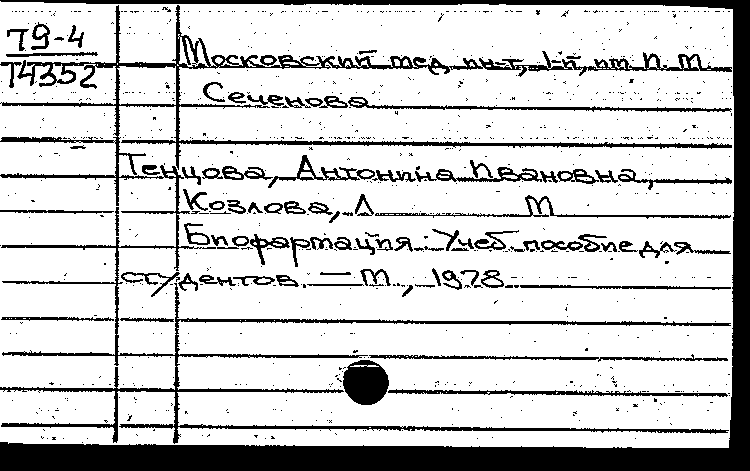 Т9-4
14352
Московский мед. ин-т, 1-й, им И. М.
Сеченова
Тенцова, Антонина Ивановна,
Козлова, Л М
Биофармация: Учеб. пособие для
студентов. — М., 1978